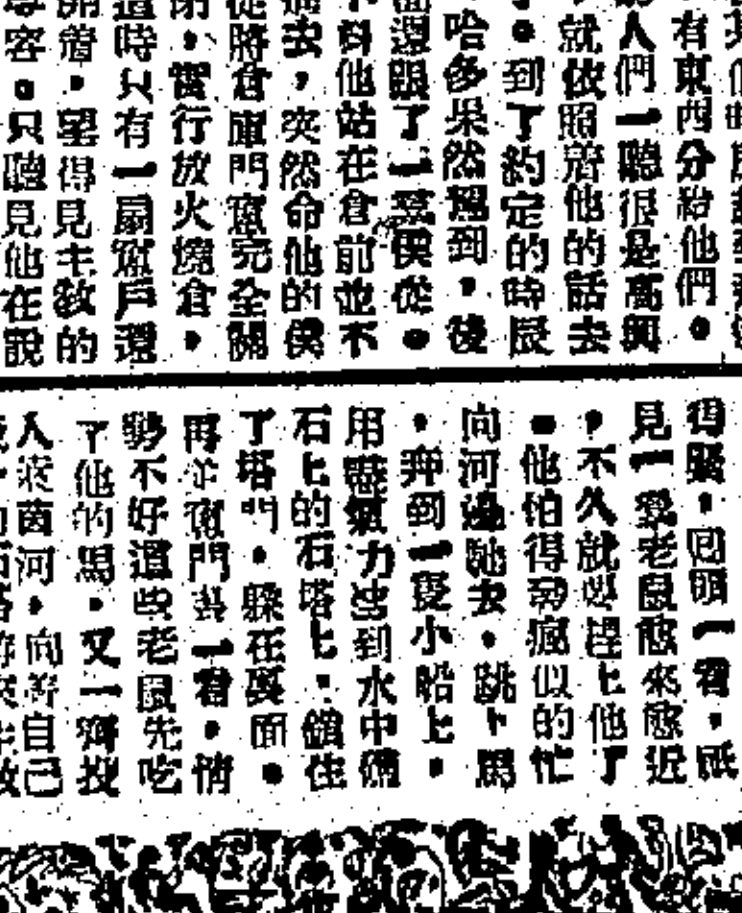 有東西分給他們。
人們一聽很是高興
就依照着他的話去
。到了約定的時辰
哈多果然到，後
面還跟了一羣僕從。
料他站在倉前並不
去，突然命他的僕
從將倉庫門窗完全關
閉，實行放火燒倉，
這時只有一扇窗戶還
開着，望得見主教的
容。只聽見他在說
得緊，回頭一看，祇
見一羣老鼠愈來愈近
，不久就要趕上他了
。他怕得發瘋似的忙
向河邊馳去，跳下馬
，奔到一隻小船上，
用盡氣力到水中
石上的石塔上，鎖住
了塔門，躲在裏面。
再從窗門一看，情
勢不好這些老鼠先吃
了他的馬，又一齊投
入萊茵河，向着自己